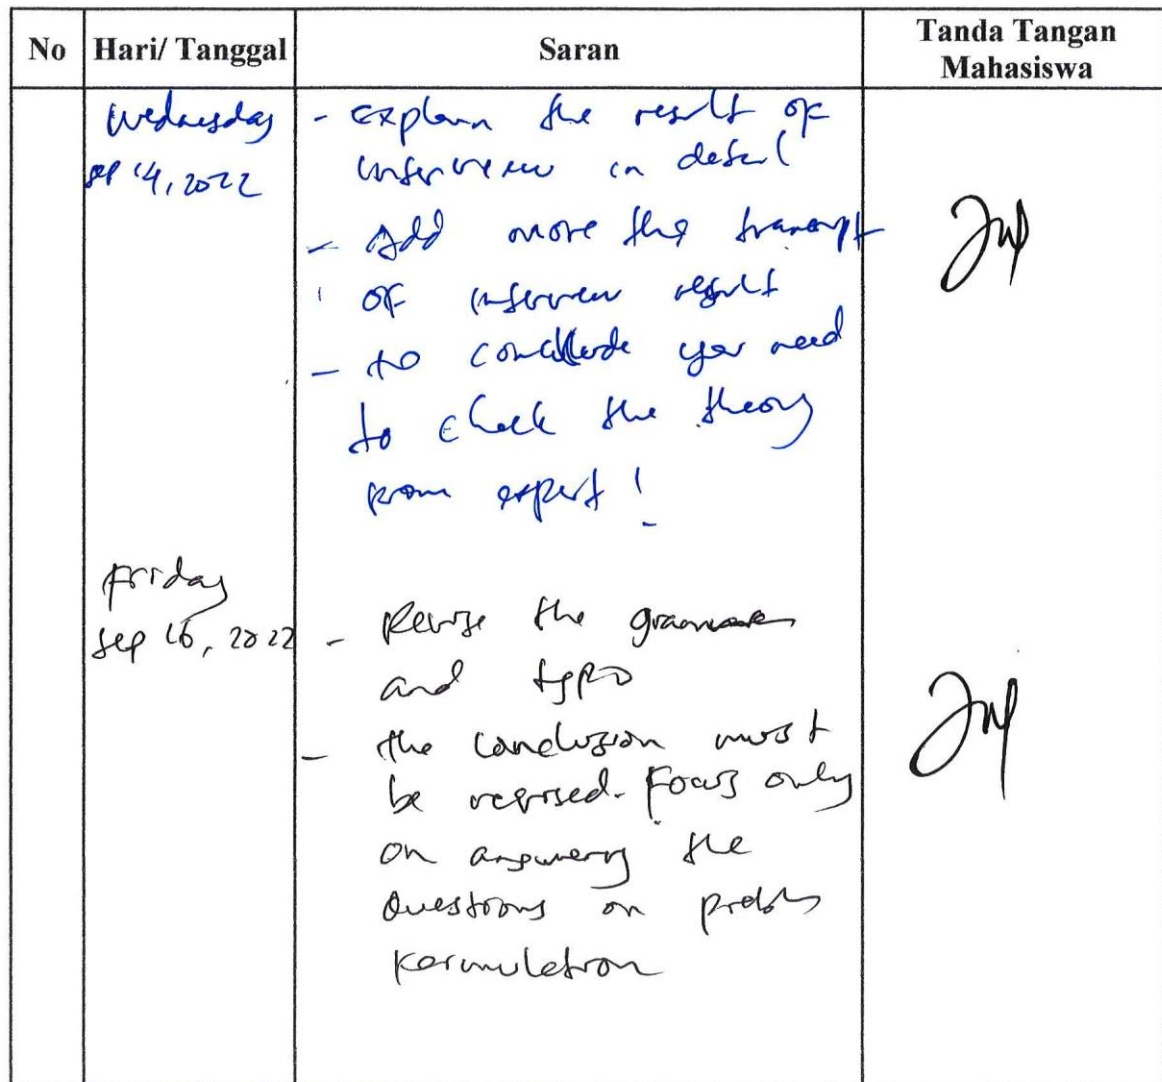 No Hari/ Tanggal Saran Tanda Tangan Mahasiswa
Wednesday
Sep 14, 2022
- Explain the result of
interview in detail
- Add more the transcript
of interview result
- to conclude you need
to check the theory
from expert!
Friday
Sep 16, 2022
- Revise the grammar
and typo
- the conclusion must
be revised. Focus only
on answering the
Questions on problem
formulation